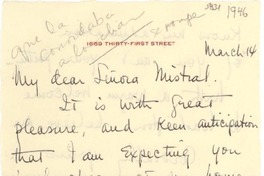 1946
que la
a la
1669 THIRTY-FIRST STREET
March 14
My dear Sinora Mistral.
It is with great
pleasure, and keen anticipation
that I am expecting you